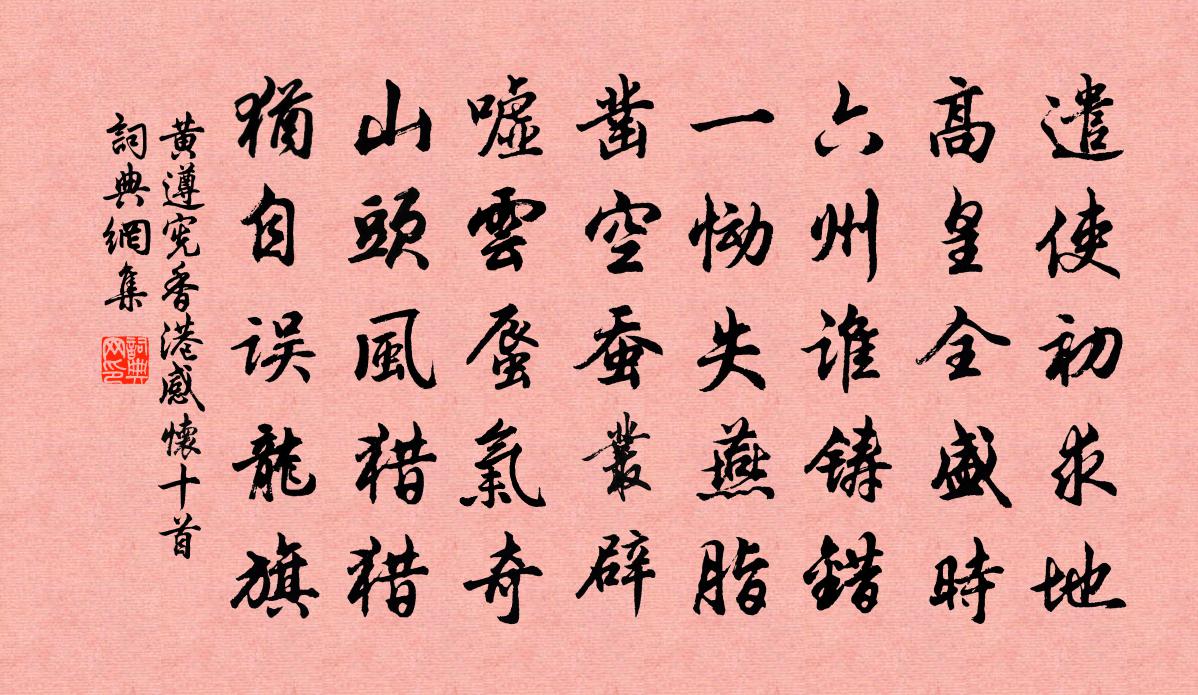 遣使初求地
高皇全盛時
六州誰鑄錯
一恸失燕脂
凿空蚕叢辟
噓雲蜃氣奇
山頭風猎猎
猶自误龍旗
黄遵宪香港感懷十首
詞典網集
詞典网印